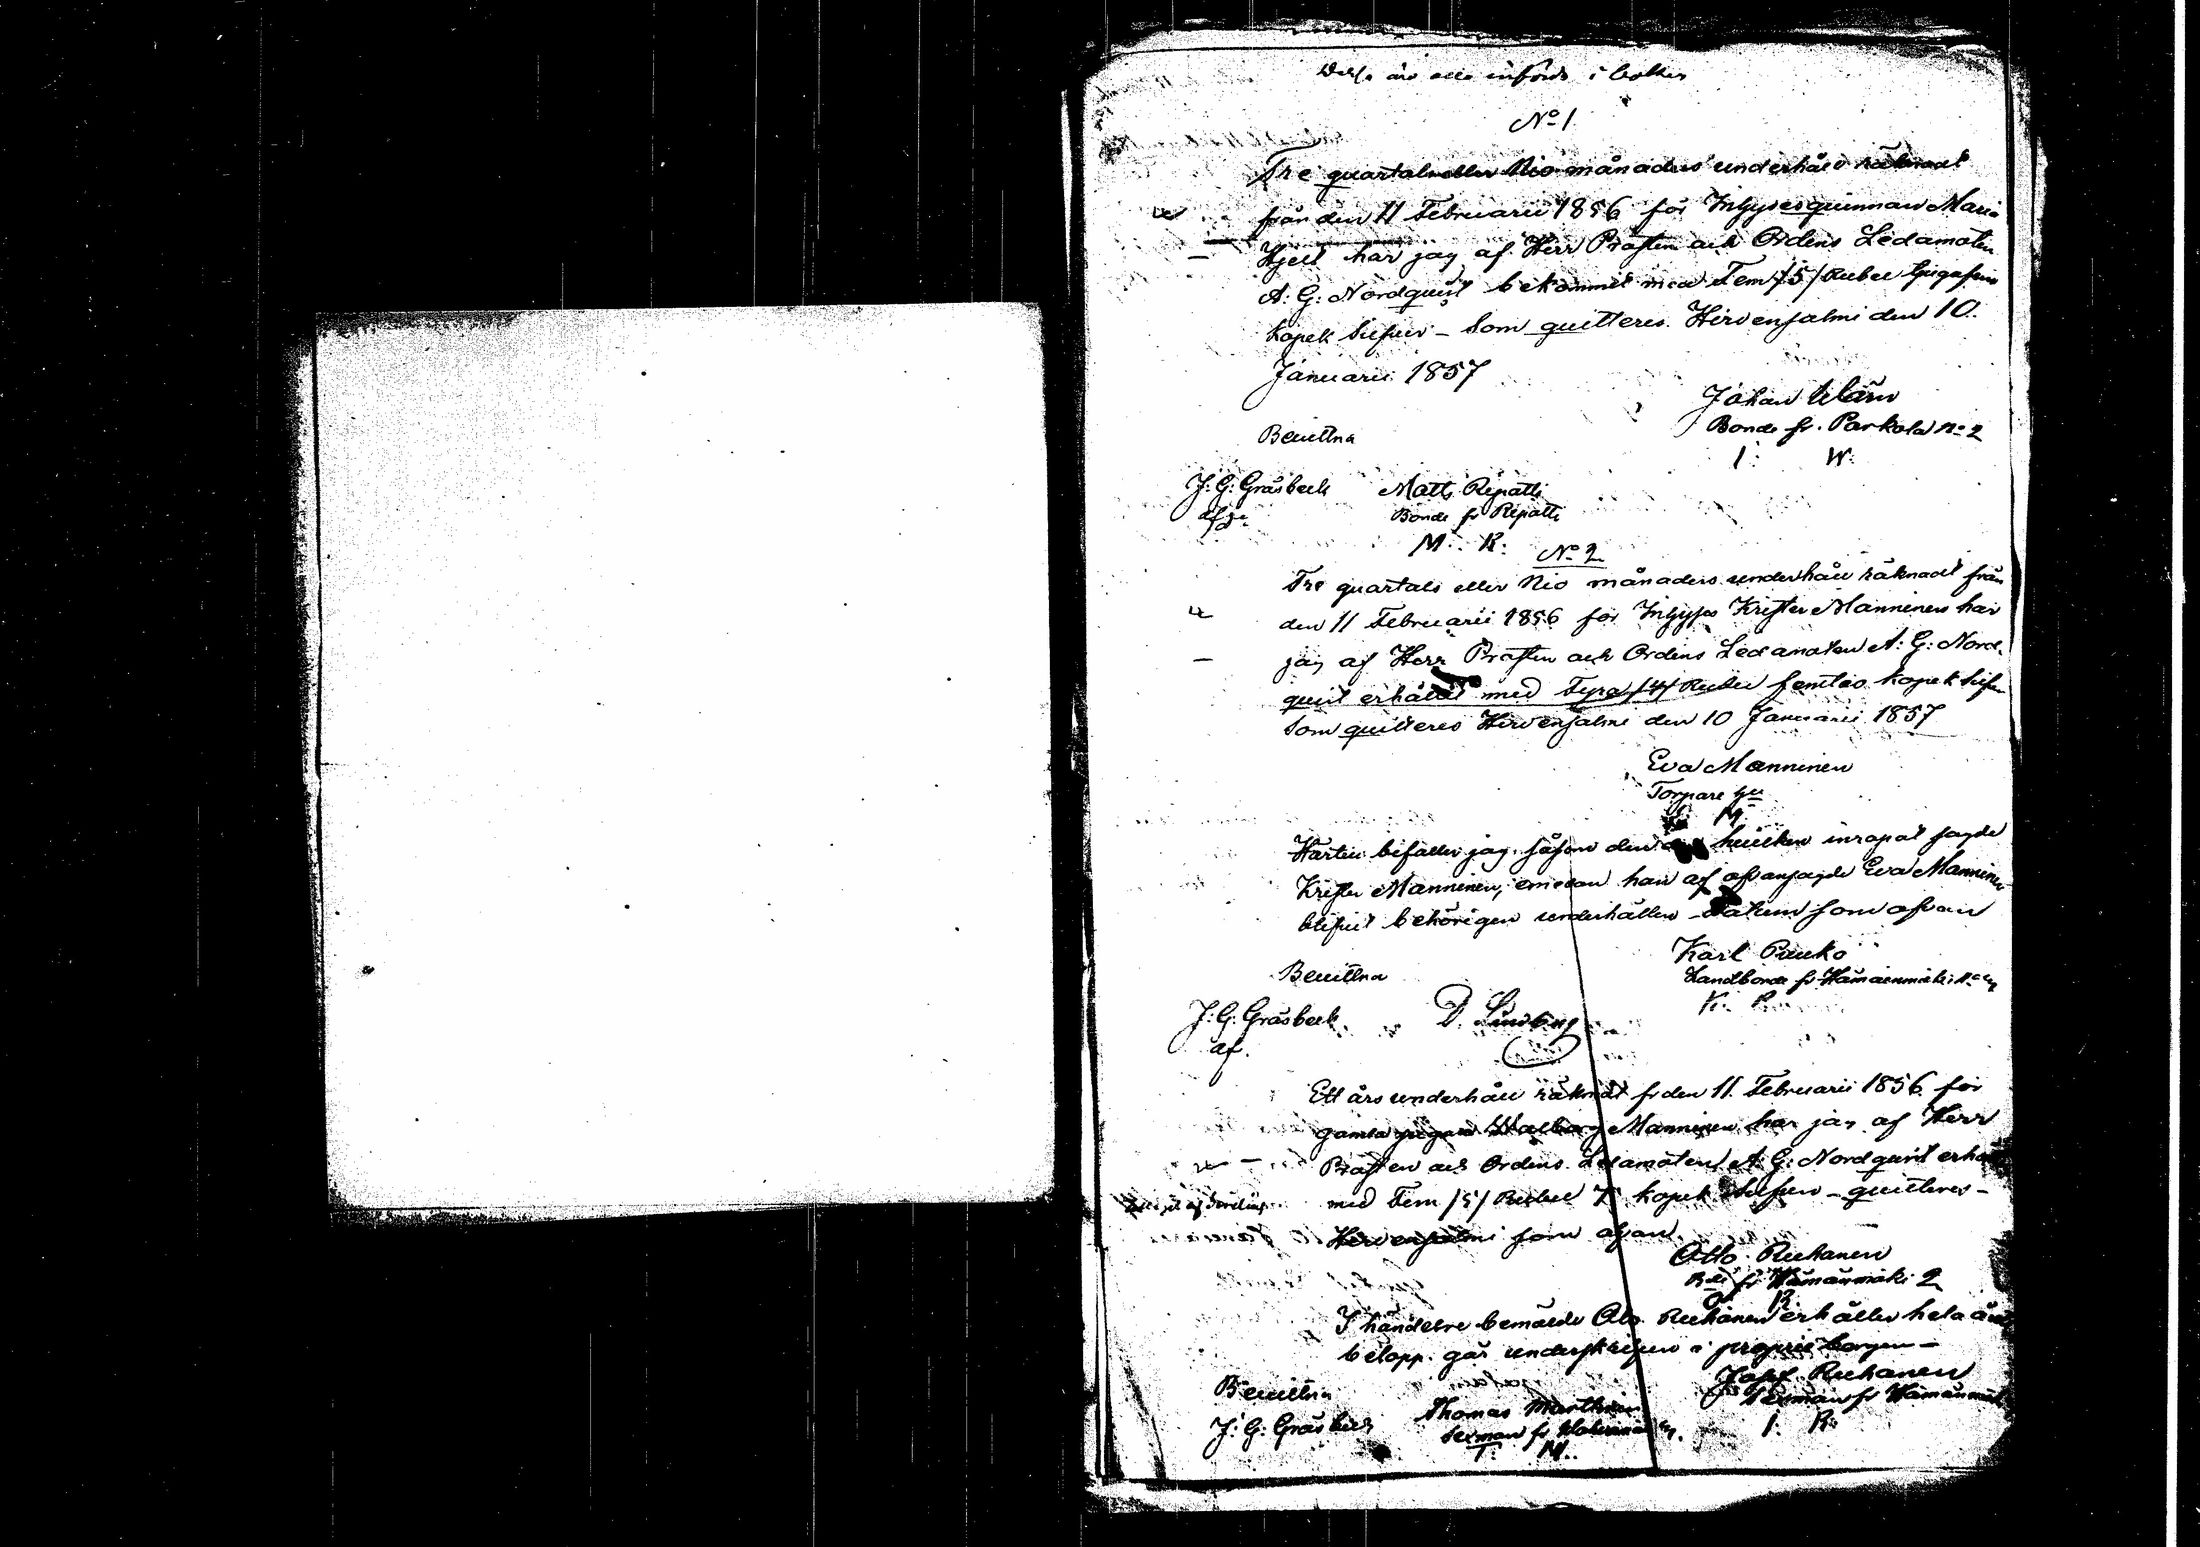 Dessa äro alla införde i boken
No 1
Tre quartals eller Nio månaders underhåll räknadt
från den 11 Februarii 1856 för Inhyses quinnan Maria
Hjelt har jag af Herr Prosten och Ordens Ledamoten
A: G: Nordquist bekommit med Fem /5/ Rubel
kopek Silfver – Som quitteres. Hirvensalmi den 10.
Januarii 1857
Johan
Bonde fr. Parkola No 2
I: W:
Bevittna
J: G: Gråsbeck Matts Ripatti
Bonde fr Ripatti
M. R:
No 2
Tre quartals eller Nio månaders underhåll räknadt från
den 11 Februarii 1856 för Inhyses Krister Manninen har
jag af Herr Prosten och Ordens Ledamoten A: G: Nord-
quist erhållit med Fyra /4/ Rubel femtio kopek Silfver
Som quitteres Hirvensalmi den 10 Januarii 1857
Eva Manninen
Torpare
M
jag såsom den hvilken
Krister Manninen, emedan han af ofvansagde Eva Manninen
blifvit behörigen underhållen – Datum som ofvan
Karl Pauko
Landbonde fr
K. P.
Bevittna
J: G: Gråsbeck. D. Lindberg
af.
Ett års underhåll räknadt fr den 11. Februarii 1856 för
gamla pigan Walborg Manninen har jag af Herr
Prosten och Ordens Ledamoten A: G: Nordquist erhållit
med Fem /5/ Rubel kopek Silfver – quitteres –
Hirvensalmi som ofvan.
Otto Ruhanen
fr Hämänmäki 2
O. R
I händelse bemälde Otto Ruhanen erhåller hela års
belopp. går underskrifven i borgen –
Josef Ruhanen
Sexman fr Hämänmäki
I. R:
Bevittna
J: G: Gråsbeck Thomas
Sexman fr
T. M.